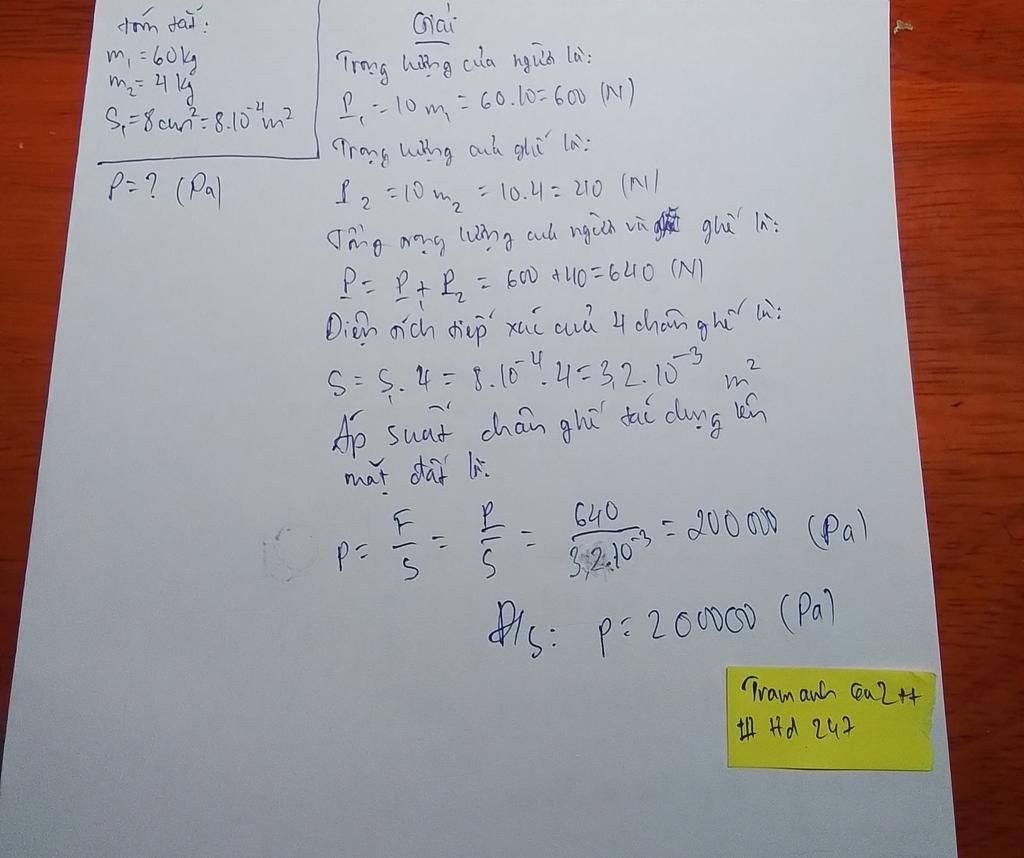 Tóm tắt:
m₁ = 60kg
m₂ = 4kg
S₁ = 8cm² = 8.10⁻⁴m²
P = ? (Pa)
Giải
Trọng lượng của người là:
P₁ = 10 m₁ = 60.10 = 600 (N)
Trọng lượng của ghế là:
P₂ = 10 m₂ = 10.4 = 40 (N)
Tổng trọng lượng của người và ghế là:
P = P₁ + P₂ = 600 + 40 = 640 (N)
Diện tích tiếp xúc của 4 chân ghế là:
S = S₁ . 4 = 8.10⁻⁴. 4 = 3,2.10⁻³ m²
Áp suất chân ghế tác dụng lên
mặt đất là:
P = F/S = P/S = 640/3,2.10⁻³ = 200000 (Pa)
Đ/s: P = 200000 (Pa)
Tramanh 6a2++
Hd 247